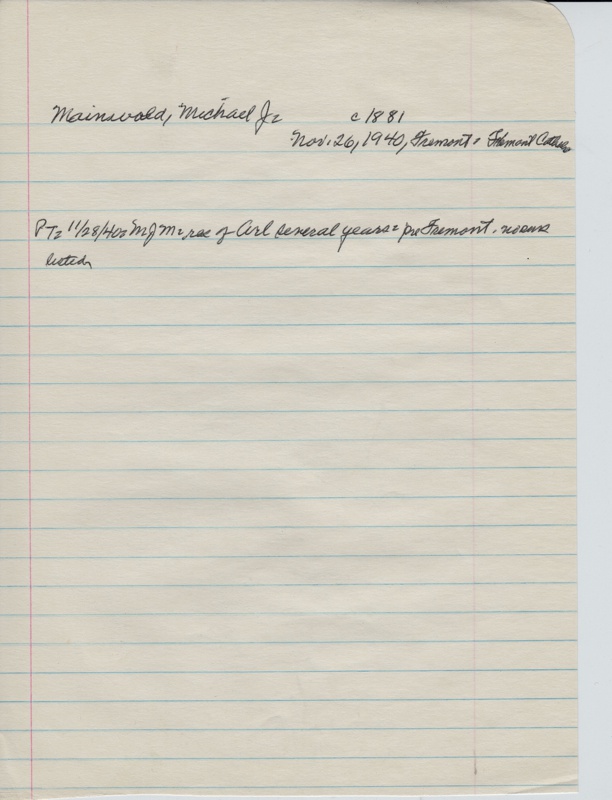 Mainwald, Michael J= c1881
Nov. 26, 1940, Fremont, Fremont
PT= 11/28/40= MJM= res of Arl several years= pre Fremont.
listed